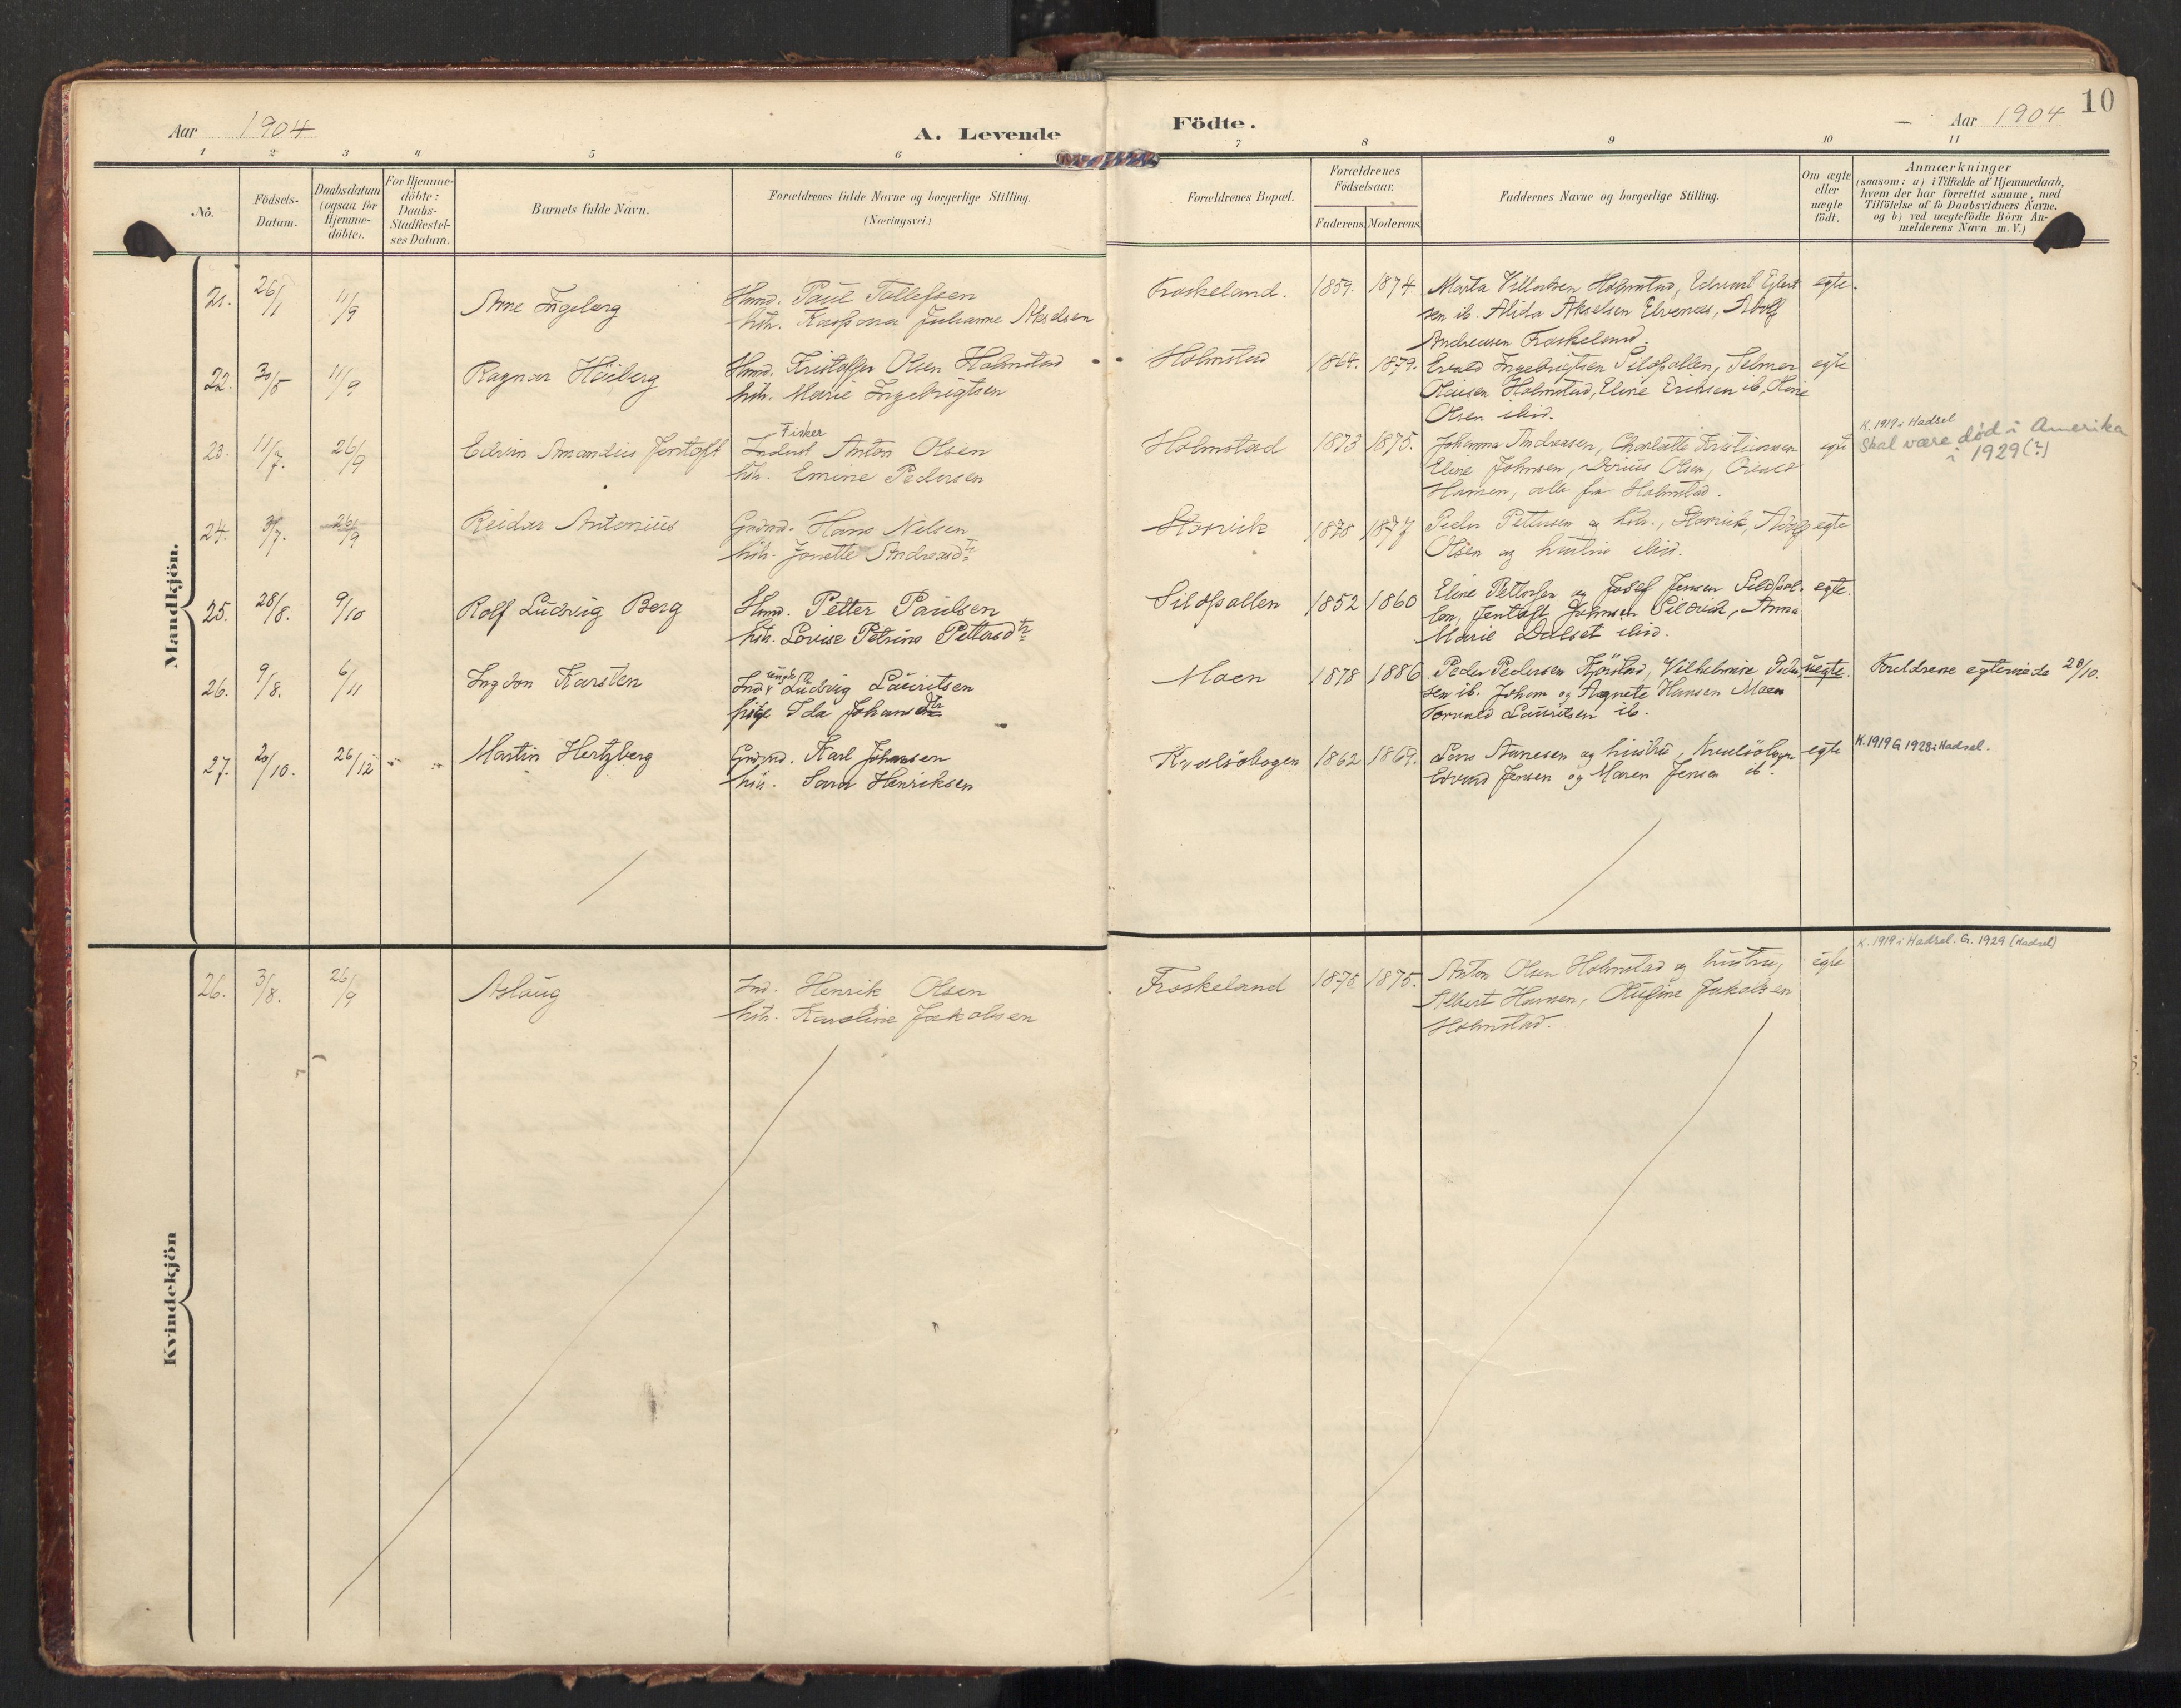 Aar 1904
A. Levende
Födte.
Aar 1904
10
1 2 3 4 5 6 7 8 9 10 11
No.
Födsels-
Datum.
Daabsdatum
(ogsaa for
Hjemme-
döbte).
For Hjemme-
döbte:
Daabs-
Stadfæstel-
ses Datum.
Barnets fulde Navn.
Forældrenes fulde Navne og borgerlige Stilling.
(Næringsvei.)
Forældrenes Bopæl.
Forældrenes
Födselsaar.
Faderens. Moderens.
Faddernes Navne og borgerlige Stilling.
Om ægte
eller
uægte
födt.
Anmærkninger
(saasom: a) i Tilfælde af Hjemmedaab,
hvem der har forrettet samme, med
Tilföielse af to Daabsvidners Navne,
og b) ved uægtefödte Börn An-
melderens Navn m. V.)
Mandkjön.
21. 26/1 11/9 Arne Ingeberg
Gmd. Paul Tollefsen
hstr. Kaspara Julianne Akselsen
Froskeland. 1859. 1874.
Marta Villadsen Holmstad, Edvard Egbert
sen ib. Alida Akselsen Elvenes, Adolf
Andreasen Froskeland.
egte.
22. 30/5 11/9 Ragnar Höiberg
Gmd. Kristoffer Olsen Holmstad
hstr. Marie Ingebrigtsen
Holmstad 1864. 1879.
Evald Ingebrigtsen Sildpollen, Selmer
Olausen Holmstad, Eline Eriksen ib,
Olsen ibid.
egte
23. 11/7. 26/9 Edvin Amandus Jentoft
Fisker
Inderst Anton Olsen
hstr. Emine Pedersen
Holmstad 1873 1875.
Johanna Andreasen, Charlotte Kristiansen
Eline Johnsen, Olsen,
Hansen, alle fra Holmstad.
egte
K. 1919 i Hadsel
Skal være död i Amerika
i 1929 (?)
24. 3/7. 26/9 Reidar Antonius
Grdmd. Hans Nilsen
hstr. Jonette Andreasdtr
Storvik 1878 1877.
Peder Pettersen & hstr., Storvik, Adolf
Olsen og hustru ibid.
egte
25. 28/8. 9/10 Rolf Ludvig Berg
Gmd. Petter Paulsen
hstr. Lovise Petrine Pettersdtr
Sildpollen 1852 1860
Eline Pettersen og Josef Jensen Sildpol-
len, Jentoft Johnsen Sildvik, Anna
Marie Dalset ibid.
egte.
26. 9/8. 6/11 Ingdon Karsten
ungk.
Ind. Ludvig Lauritsen
pige Ida Johansdtr
Maen 1878 1886
Peder Pedersen Kjörstad, Vilhelmine Peder-
sen ib. Johan og Agnete Hansen Maen
Torvald Lauritsen ib.
uegte.
Forældrene egteviede 28/10.
27. 20/10. 26/12 Martin Hertzberg
Grdmd. Karl Johansen
hstr. Sara Henriksen
Kvalsöbogen 1862 1869.
Lars Arnesen og hustru, Kvalsöbogen
Edvard Jensen og Maren Jensen ib.
egte
K. 1919 G 1928 i Hadsel.
Kvindekjön
26. 3/8. 26/9 Aslaug
Ind. Henrik Olsen
hstr. Karoline Jakobsen
Froskeland 1875 1875.
Anton Olsen Holmstad og hustru,
Albert Hansen, Rufine Jakobsen
Holmstad.
egte
K. 1919 i Hadsel. G. 1929 (Hadsel)